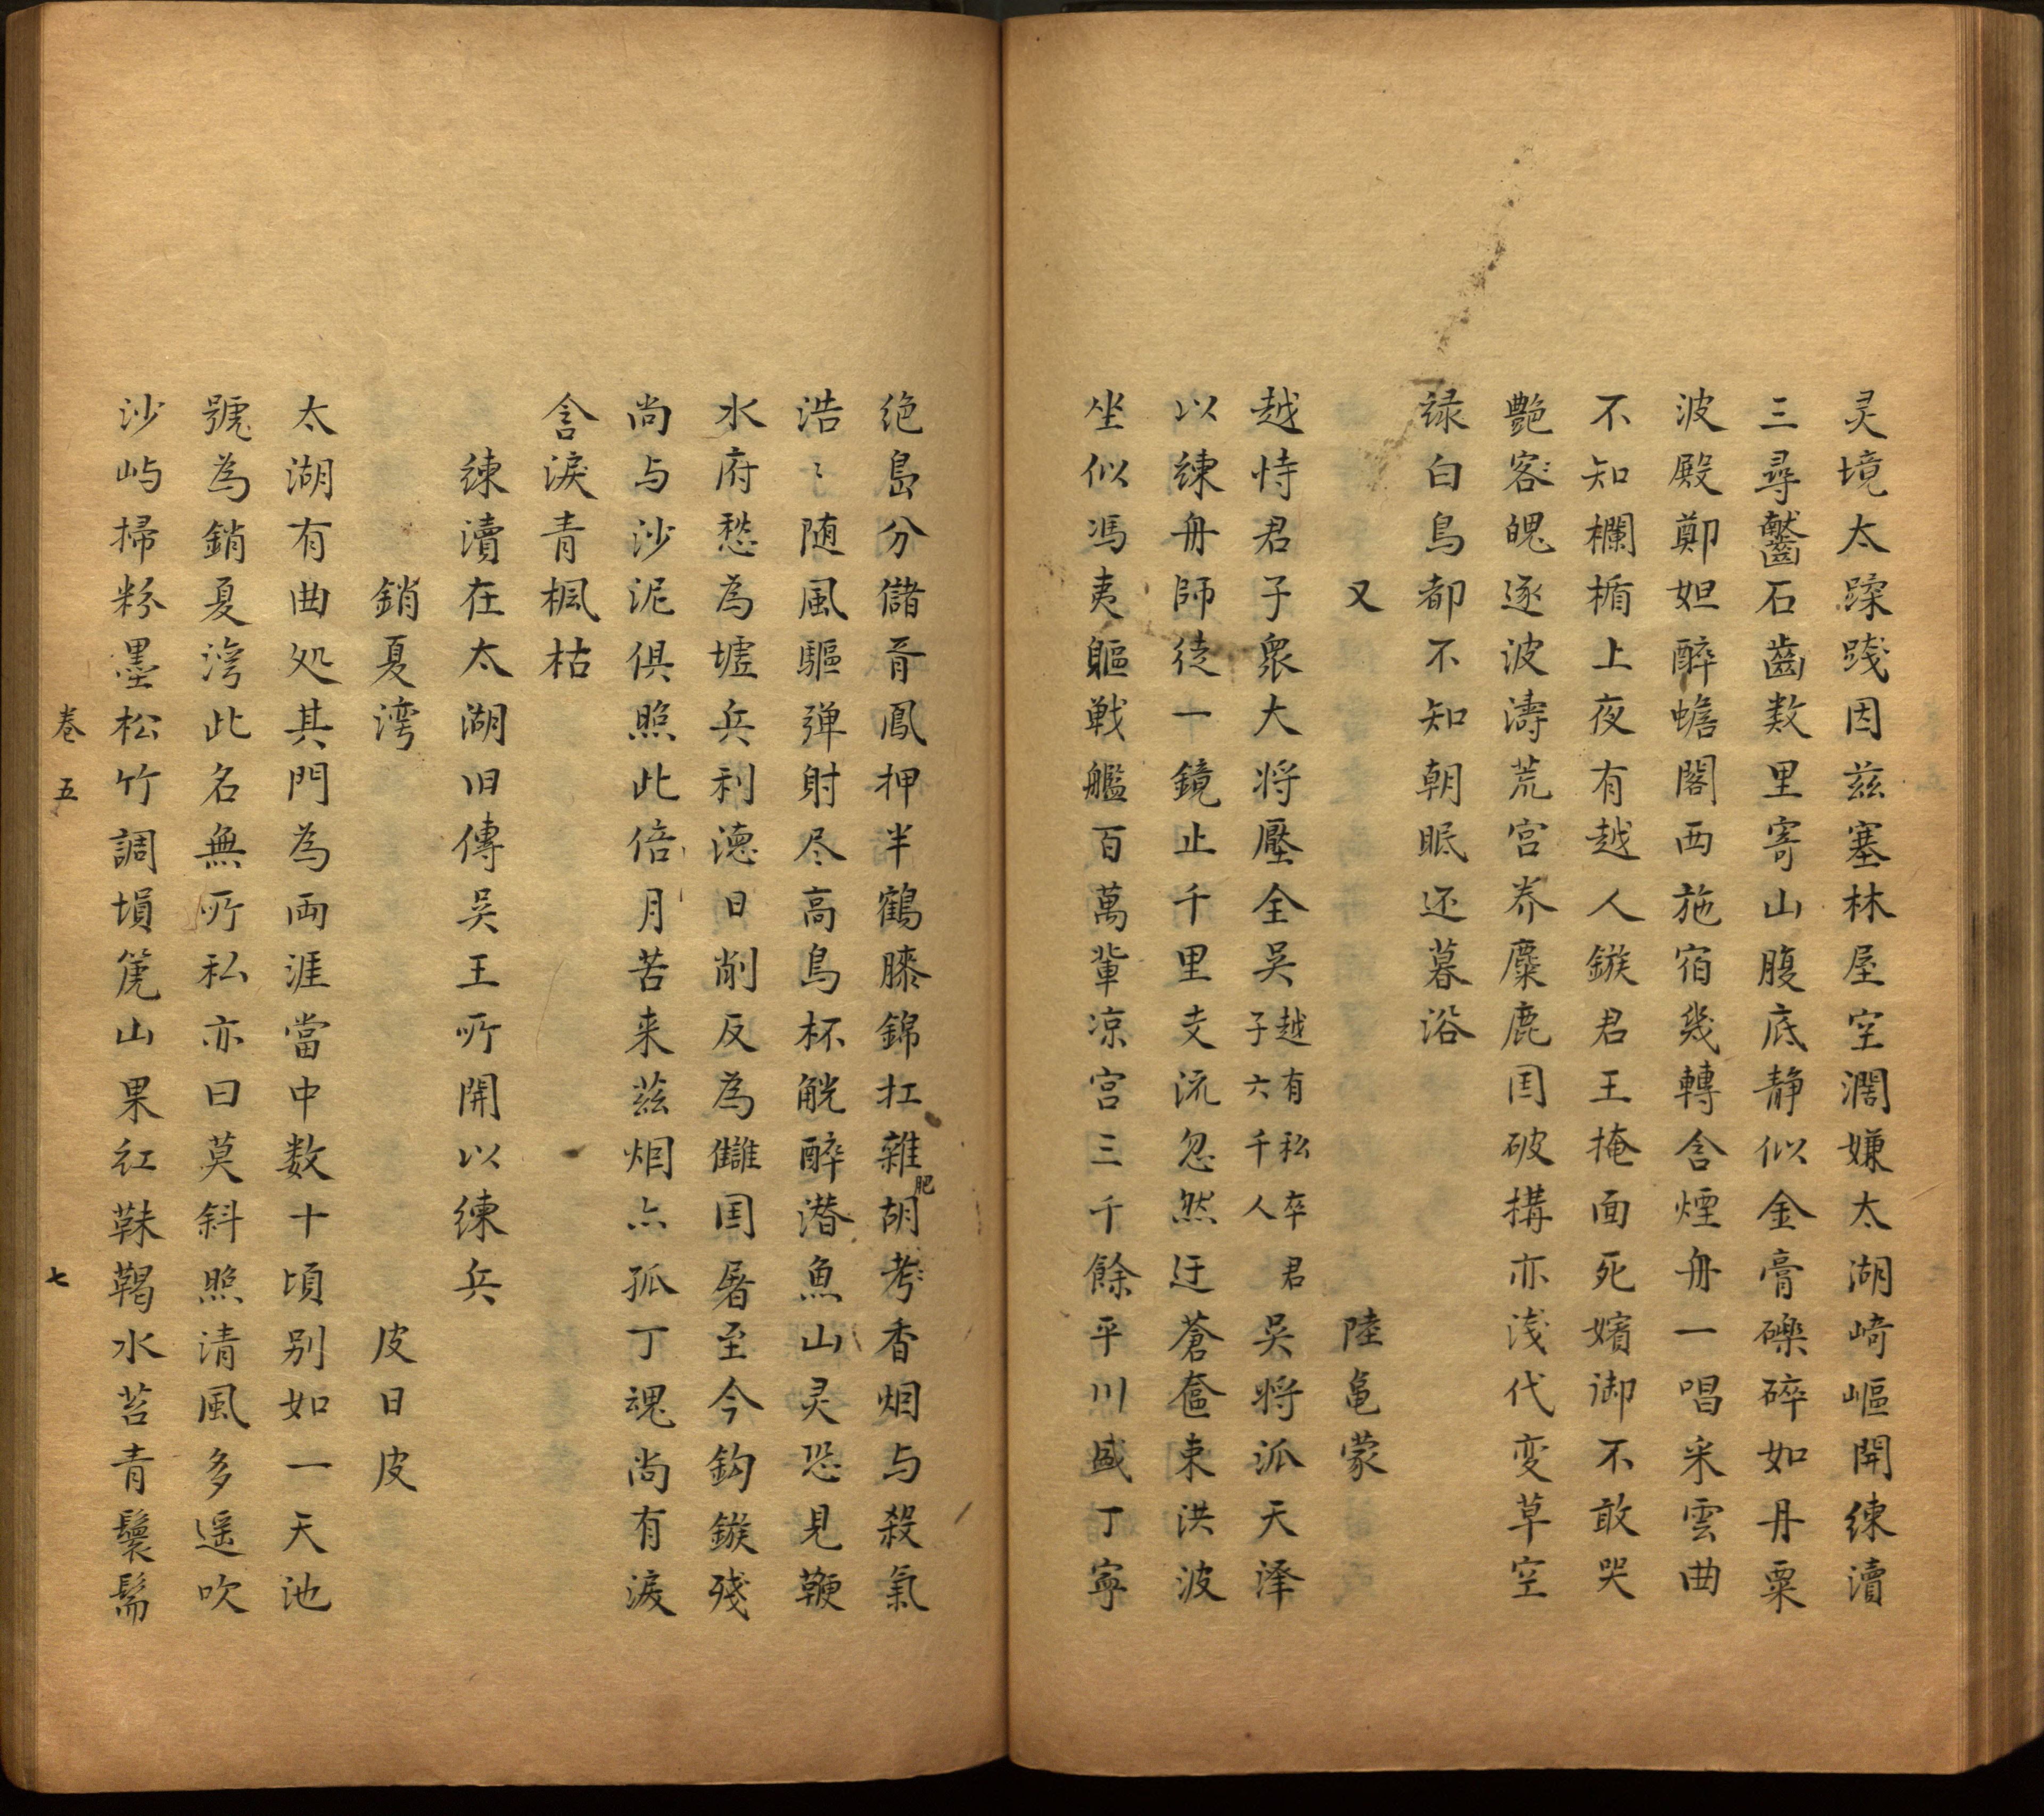 灵境太蹂踐因茲塞林屋空濶嫌太湖崎嶇開練瀆
三尋齾石齒数里寄山腹底静似金膏礫碎如丹粟
波殿鄭妲醉蟾閣西施宿幾轉含煙舟一唱来雲曲
不知欄楯上夜有越人鏃君王掩面死嬪御不敢哭
艶客魄逐波濤荒宫养麋鹿国破構亦淺代变草空
禄白鳥都不知朝眠还暮浴
又 陸亀蒙
越恃君子衆大将壓全吴越有私卒君子六千人吴将派天澤
以練舟師徒一鏡止千里支流忽然迂蒼奩束洪波
坐似馮夷軀戦艦百萬輩凉宫三千餘平川盛丁寧
绝島分儲胥鳳押半鶴膝錦扛雜肥胡考香烟与殺氣
浩〻随風驅弹射尽高鳥杯觥醉潜魚山灵恐見鞭
水府愁為墟兵利德日削反為讎国屠至今鈎鏃殘
尚与沙泥俱照此倍月苦来茲烟亦孤丁魂尚有淚
含淚青楓枯
練瀆在太湖旧傳吴王所開以練兵
銷夏湾 皮日皮
太湖有曲処其門為両涯當中数十頃别如一天池
號為銷夏湾此名無所私亦曰莫斜照清風多遥吹
沙屿掃粉墨松竹調塤箎山果红靺鞨水苔青鬟髵
卷五 七